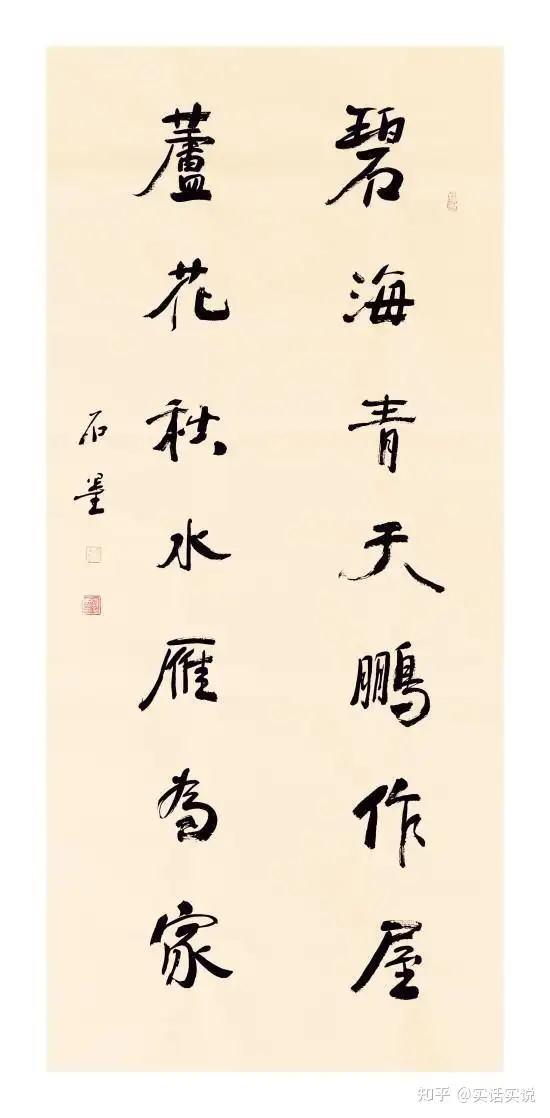 碧海青天鹏作屋
蘆花秋水雁為家
石墨
知乎 @实话实说